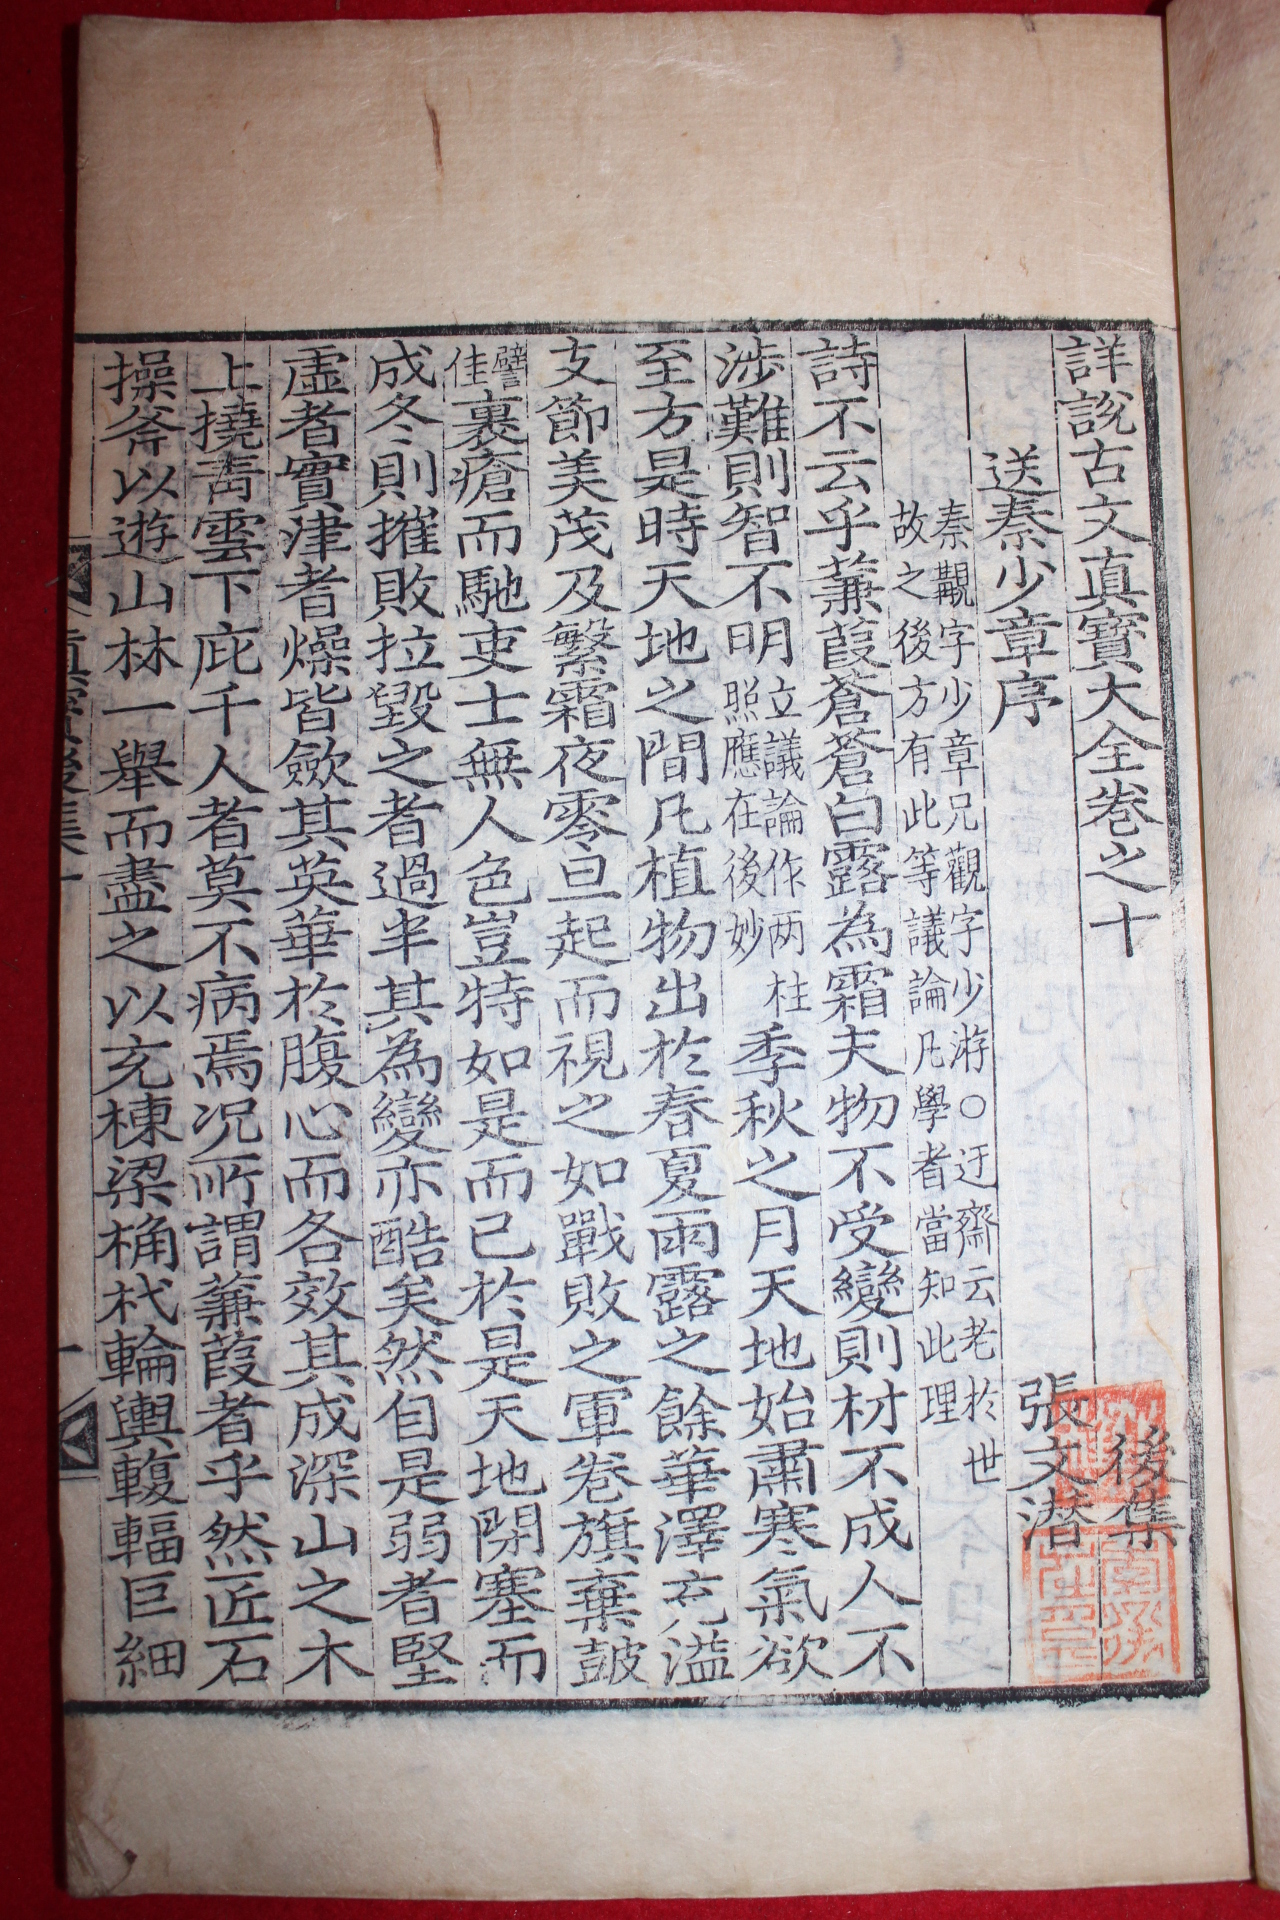 詳說古文真寶大全卷之十 後集
送秦少章序 張文潛
秦覯字少章兄觀字少游○迂齋云老於世
故之後方有此等議論凡學者當知此理
詩不云乎蒹葭蒼蒼白露為霜夫物不受變則材不成人不
涉難則智不明立議論作两柱照應在後妙季秋之月天地始肅寒氣欲
至方是時天地之間凡植物出於春夏雨露之餘華澤充溢
支節美茂及繁霜夜零旦起而視之如戰敗之軍卷旗棄鼓
譬佳裹瘡而馳吏士無人色豈特如是而已於是天地閉塞而
成冬則摧敗拉毀之者過半其為變亦酷矣然自是弱者堅
虛者實津者燥皆斂其英華於腹心而各效其成深山之木
上撓靑雲下庇千人者莫不病焉况所謂蒹葭者乎然匠石
操斧以遊山林一舉而盡之以充棟梁桷杙輪輿輹輻巨細